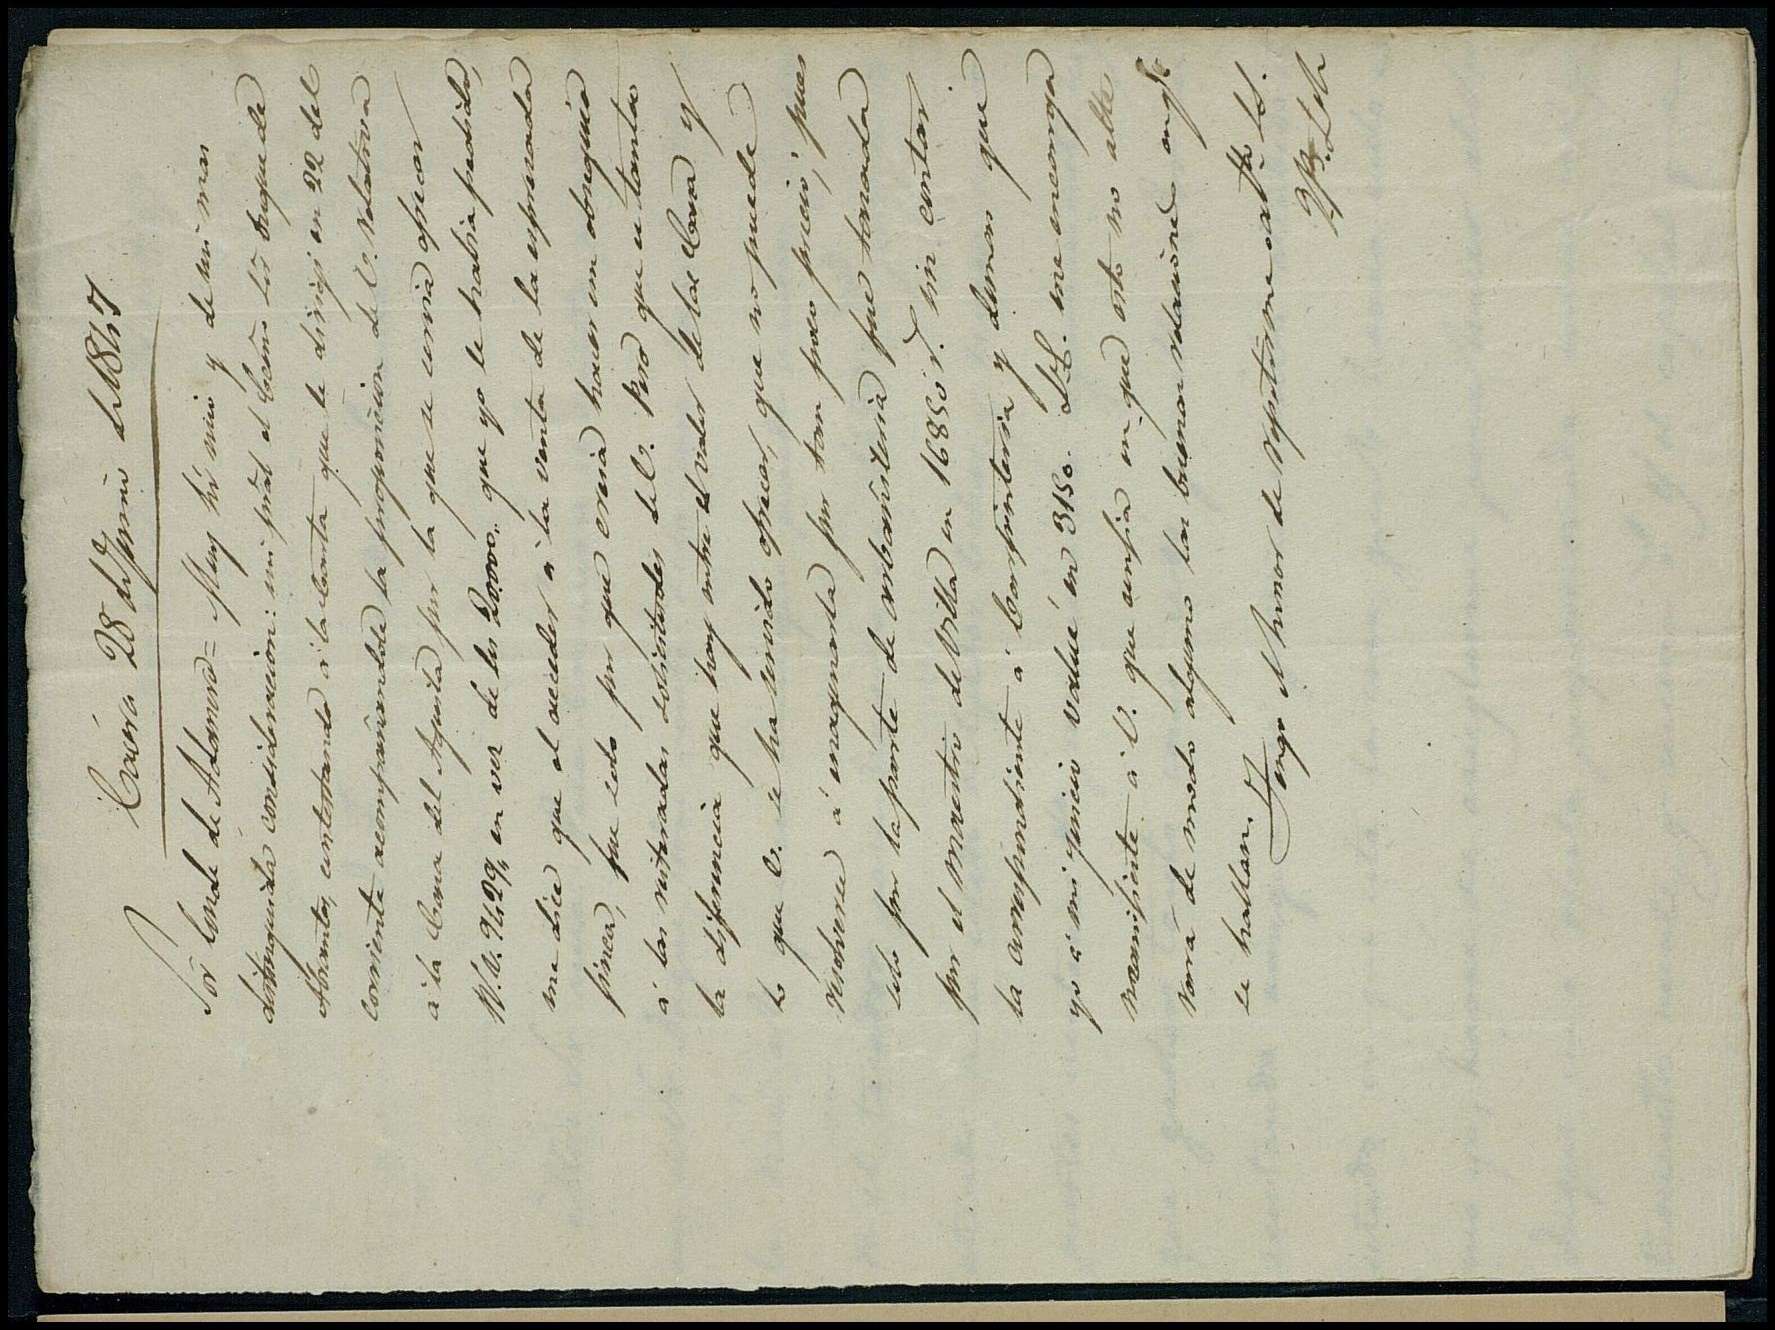 Cáceres 28 de Junio de 1847
Sor. Conde de Adanero = Muy Sr. mio y de mi mas
distinguida consideracion: mi pral. el Excmo. Sor. Duque de
Abrantes, contestando á la Carta que le dirigi en 22 del
corriente acompañandole la proposicion de V. relativa
á la Casa del Aguila por la que se servia ofrecer
R.V. 9429 en vez de los 20.000 que yo le habia pedido,
me dice que el acceder á la venta de la espresada
finca, fue solo por que creia hacer un obsequio
á los reiterados deseos de V. Pero que es tanta
la diferencia que hay entre el valor de la Casa y
lo que V. se ha servido ofrecer, que no puede
resolverse á enagenarla por tan poco precio, pues
solo por la parte de albañileria fue tasada
por el maestro de Villa en 16850 r. sin contar
la correspondiente á Carpinteria y demas que
yo á mi juicio valué en 3150. S.E. me encarga
manifieste á V. que confia en que esto no alte
rará de modo alguno las buenas relaciones en qe.
se hallan.
Tengo el honor de repetirme